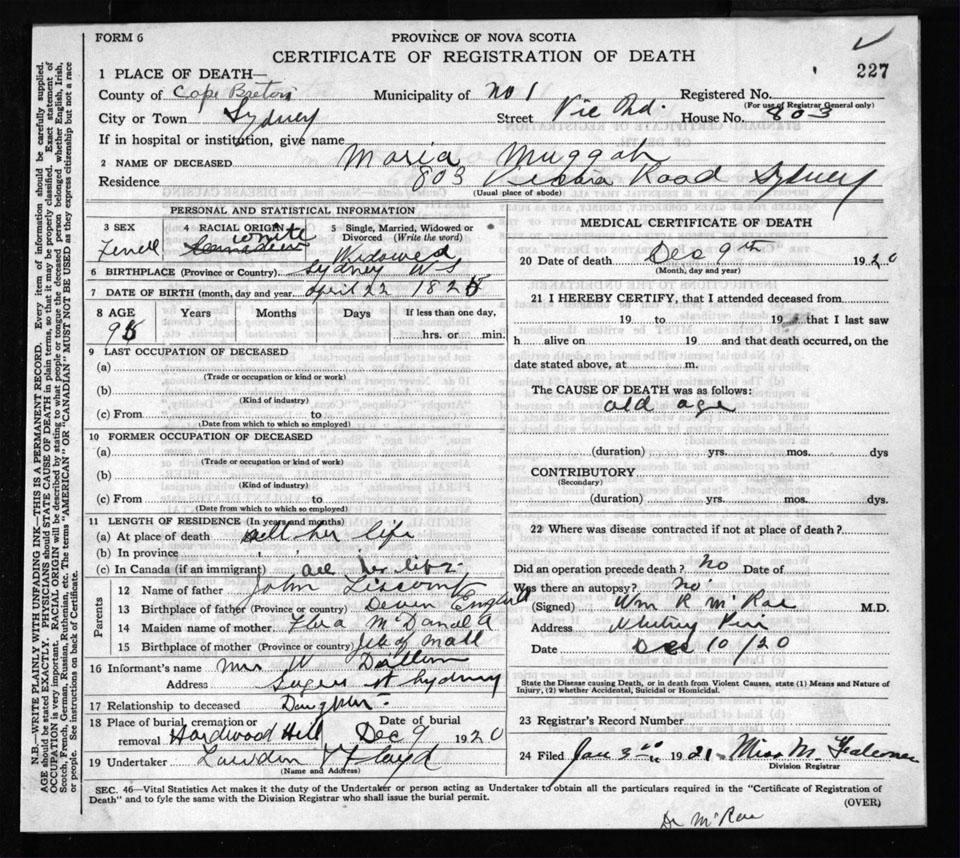 FORM 6
PROVINCE OF NOVA SCOTIA
CERTIFICATE OF REGISTRATION OF DEATH
227
1 PLACE OF DEATH—
County of Cape Breton Municipality of No 1 Registered No.
(For use of Registrar General only)
City or Town Sydney Street Vic Rd. House No. 803
If in hospital or institution, give name
2 NAME OF DECEASED Maria Muggah
Residence 803 Victoria Road Sydney
(Usual place of abode)
PERSONAL AND STATISTICAL INFORMATION
3 SEX 4 RACIAL ORIGIN 5 Single, Married, Widowed or Divorced (Write the word)
white
Canadian Widowed
6 BIRTHPLACE (Province or Country) Sydney N S
7 DATE OF BIRTH (month, day and year) April 22 1825
8 AGE Years Months Days If less than one day,
95 hrs. or min.
9 LAST OCCUPATION OF DECEASED
(a)
(Trade or occupation or kind or work)
(b)
(Kind of industry)
(c) From to
(Date from which to which so employed)
10 FORMER OCCUPATION OF DECEASED
(a)
(Trade or occupation or kind of work)
(b)
(Kind of industry)
(c) From to
(Date from which to which so employed)
11 LENGTH OF RESIDENCE (In years and months)
(a) At place of death all her life
(b) In province " " "
(c) In Canada (if an immigrant) all her life
Parents
12 Name of father John Liscomb
13 Birthplace of father (Province or country) Deven England
14 Maiden name of mother Flora McDonald
15 Birthplace of mother (Province or country) Isle of Mull
16 Informant's name Mrs W
Address St Sydney
17 Relationship to deceased Daughter
18 Place of burial, cremation or removal Hardwood Hill Date of burial Dec 9 1920
19 Undertaker Lowden & Floyd
(Name and Address)
MEDICAL CERTIFICATE OF DEATH
20 Date of death Dec 9th 1920
(Month, day and year)
21 I HEREBY CERTIFY, that I attended deceased from
19 to 19 that I last saw
h alive on 19 and that death occurred, on the
date stated above, at m.
The CAUSE OF DEATH was as follows:
old age
(duration) yrs. mos. dys
CONTRIBUTORY
(Secondary)
(duration) yrs. mos. dys.
22 Where was disease contracted if not at place of death?
Did an operation precede death? No Date of
Was there an autopsy? No
(Signed) Wm R McRae M.D.
Address Whitney Pier
Date Dec 10/20
State the Disease causing Death, or in death from Violent Causes, state (1) Means and Nature of
Injury, (2) whether Accidental, Suicidal or Homicidal.
23 Registrar's Record Number
24 Filed Jan 3rd 1921 Miss M. Falconer
Division Registrar
SEC. 46—Vital Statistics Act makes it the duty of the Undertaker or person acting as Undertaker to obtain all the particulars required in the "Certificate of Registration of
Death" and to fyle the same with the Division Registrar who shall issue the burial permit.
(OVER)
Dr McRae
N.B.—WRITE PLAINLY WITH UNFADING INK—THIS IS A PERMANENT RECORD. Every item of information should be carefully supplied.
AGE should be stated EXACTLY. PHYSICIANS should STATE CAUSE OF DEATH in plain terms, so that it may be properly classified. Exact statement of
OCCUPATION is very important. RACIAL ORIGIN will be described by stating to what people or tongue the deceased person belonged whether English, Irish,
Scotch, French, German, Russian, Ruthenian, etc. The terms "AMERICAN" OR "CANADIAN" MUST NOT BE USED as they express citizenship but not a race
or people. See instructions on back of Certificate.